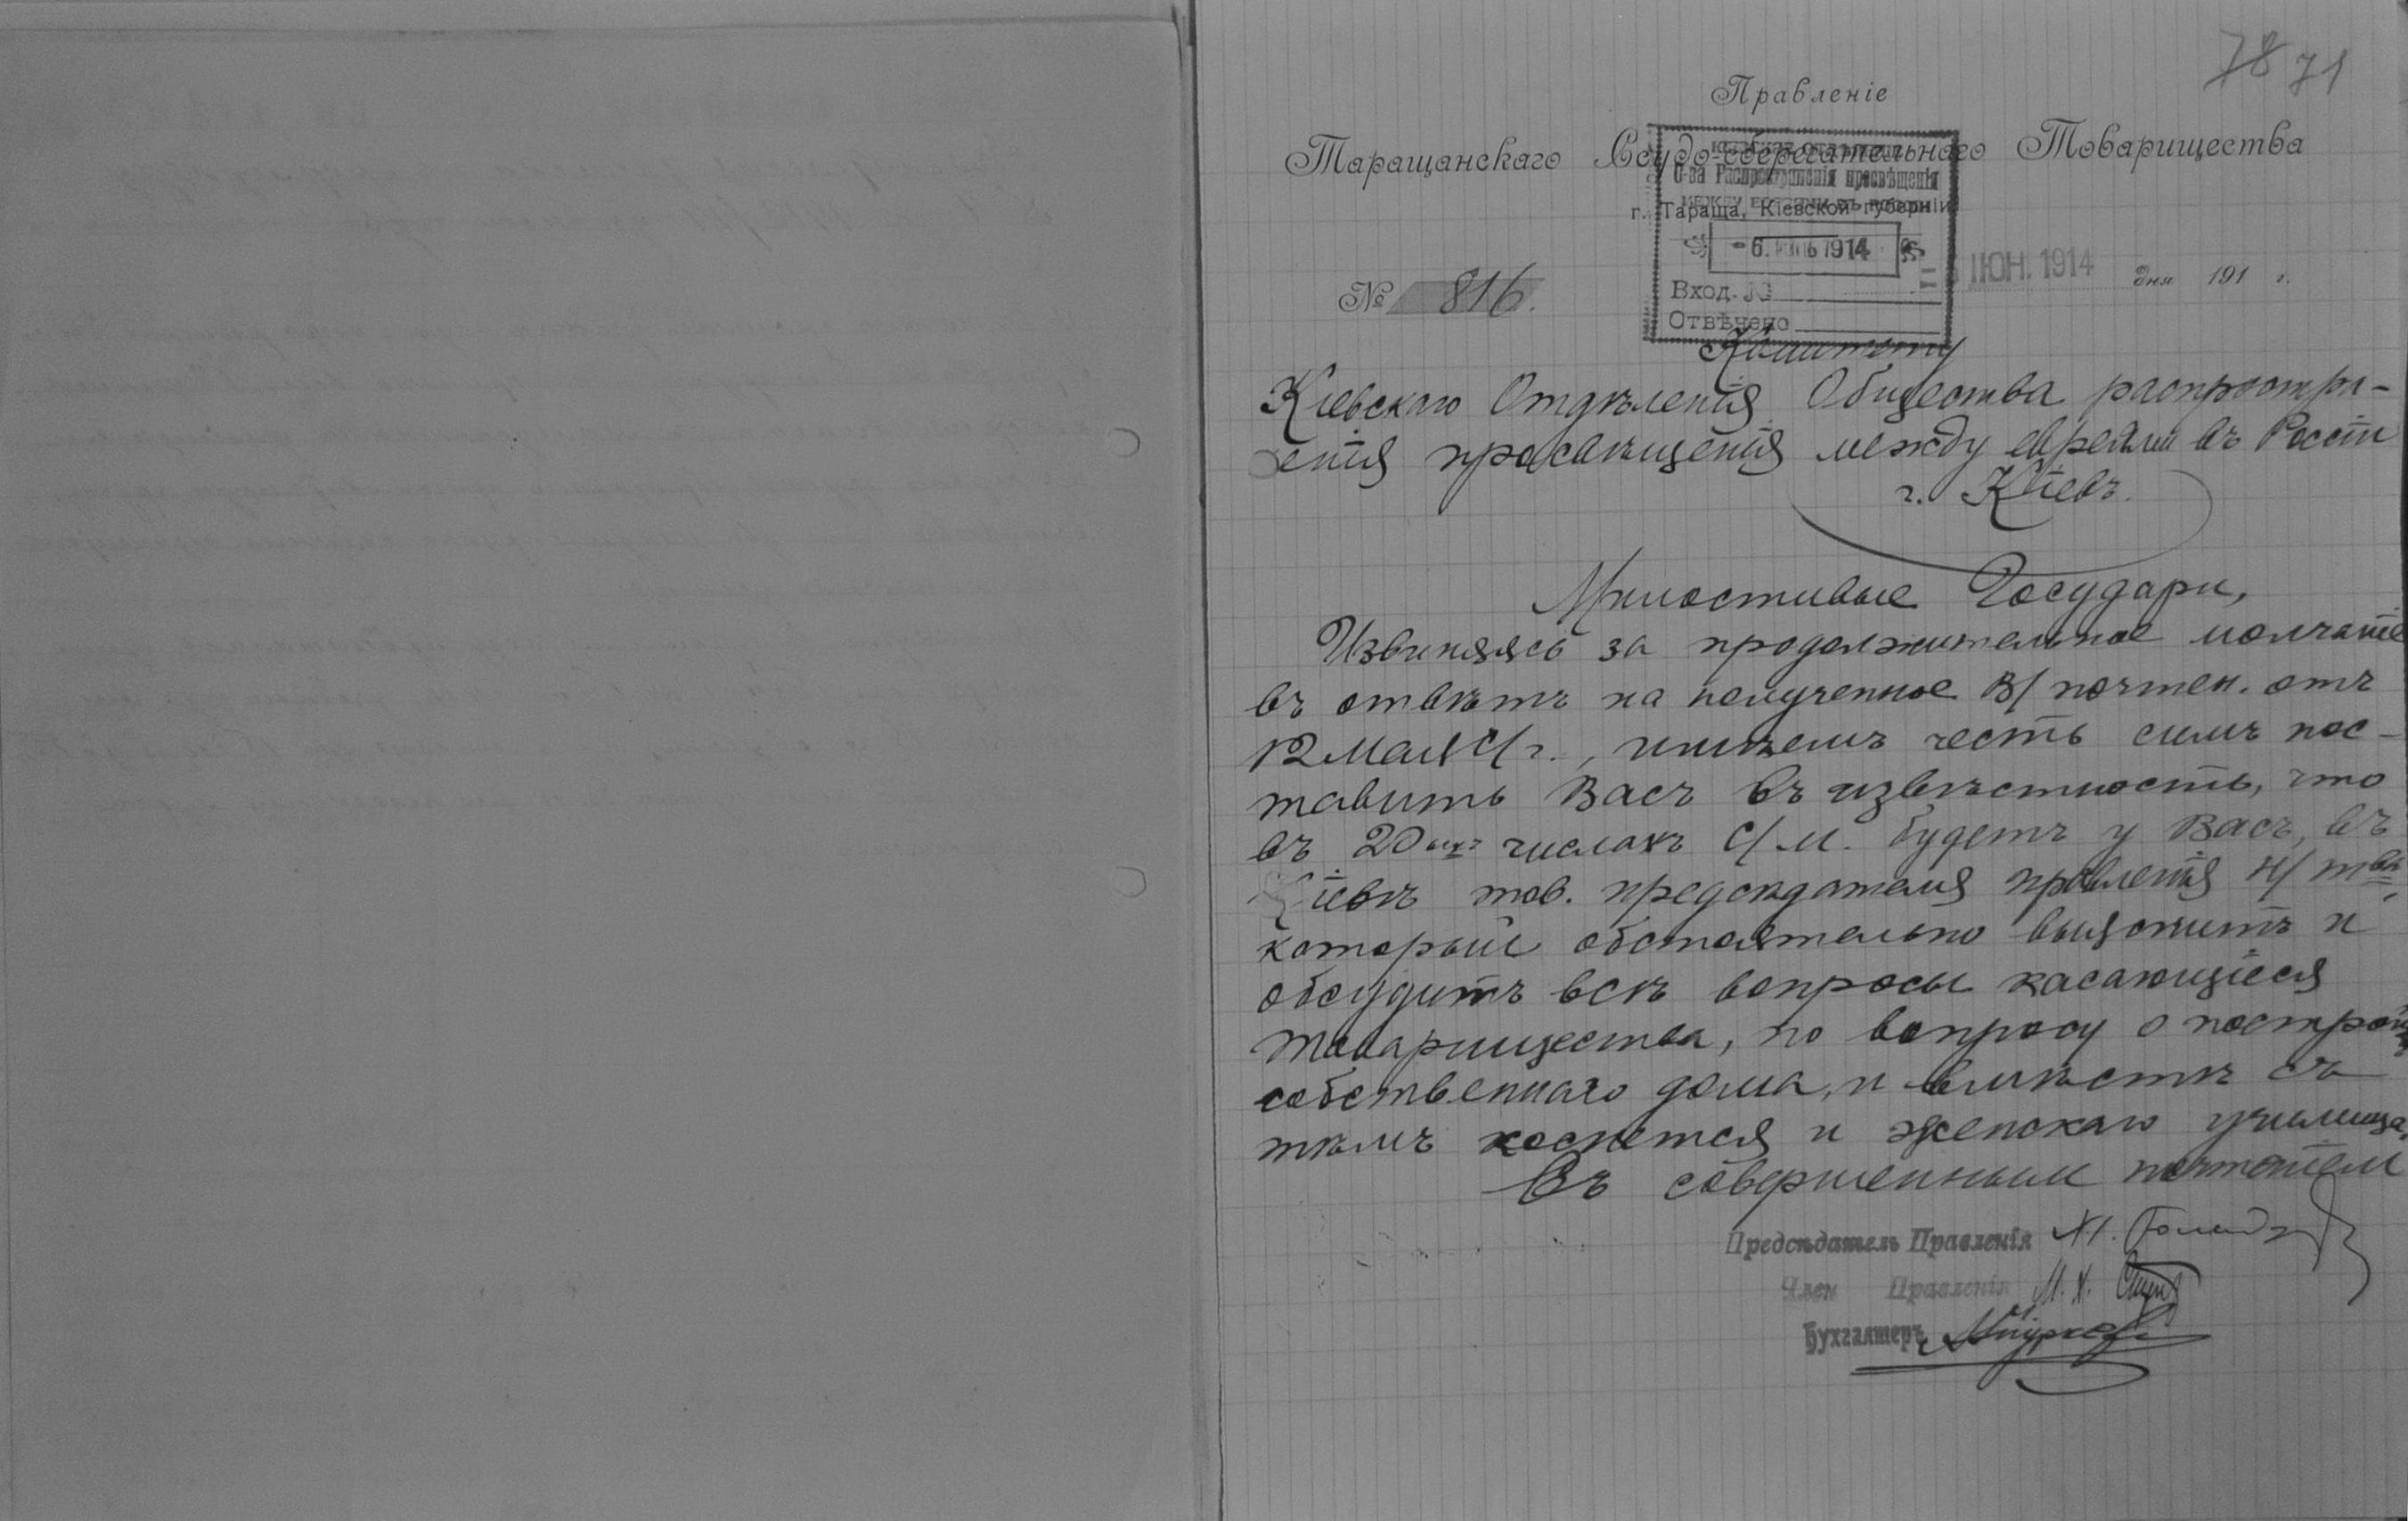 78 71
Правленіе
Таращанскаго Ссудо-сберегательнаго Товарищества
О-ва Распространенія просвѣщенія
между евреями въ Россіи
г. Тараща, Кіевской губерніи
- 6. 1914
ІЮН. 1914 дня 191 г.
№ 816.
Вход. №
Отвѣчено
Комитету
Кіевскаго Отдѣленія Общества распростра-
енія просвѣщенія между евреями въ Россіи
г. Кіевъ.
Милостивые Государи,
Извиняясь за продолжительное молчаніе
въ отвѣтъ на полученное В/ почтен. отъ
12 Мая с/г., имѣемъ честь симъ пос-
тавить Васъ въ извѣстность, что
въ 20ыхъ числахъ с/м. будетъ у Васъ, въ
Кіевѣ тов. предсѣдателя правленія н/ тва,
который обстоятельно выяснитъ и
обсудитъ всѣ вопросы касающіеся
товарищества, по вопросу о построй
собственнаго дома, и вмѣстѣ съ
тѣмъ коснется и женскаго училища.
Съ совершеннымъ почтеніем
Предсѣдатель Правленія
Член Правленія М. Х.
Бухгалтеръ